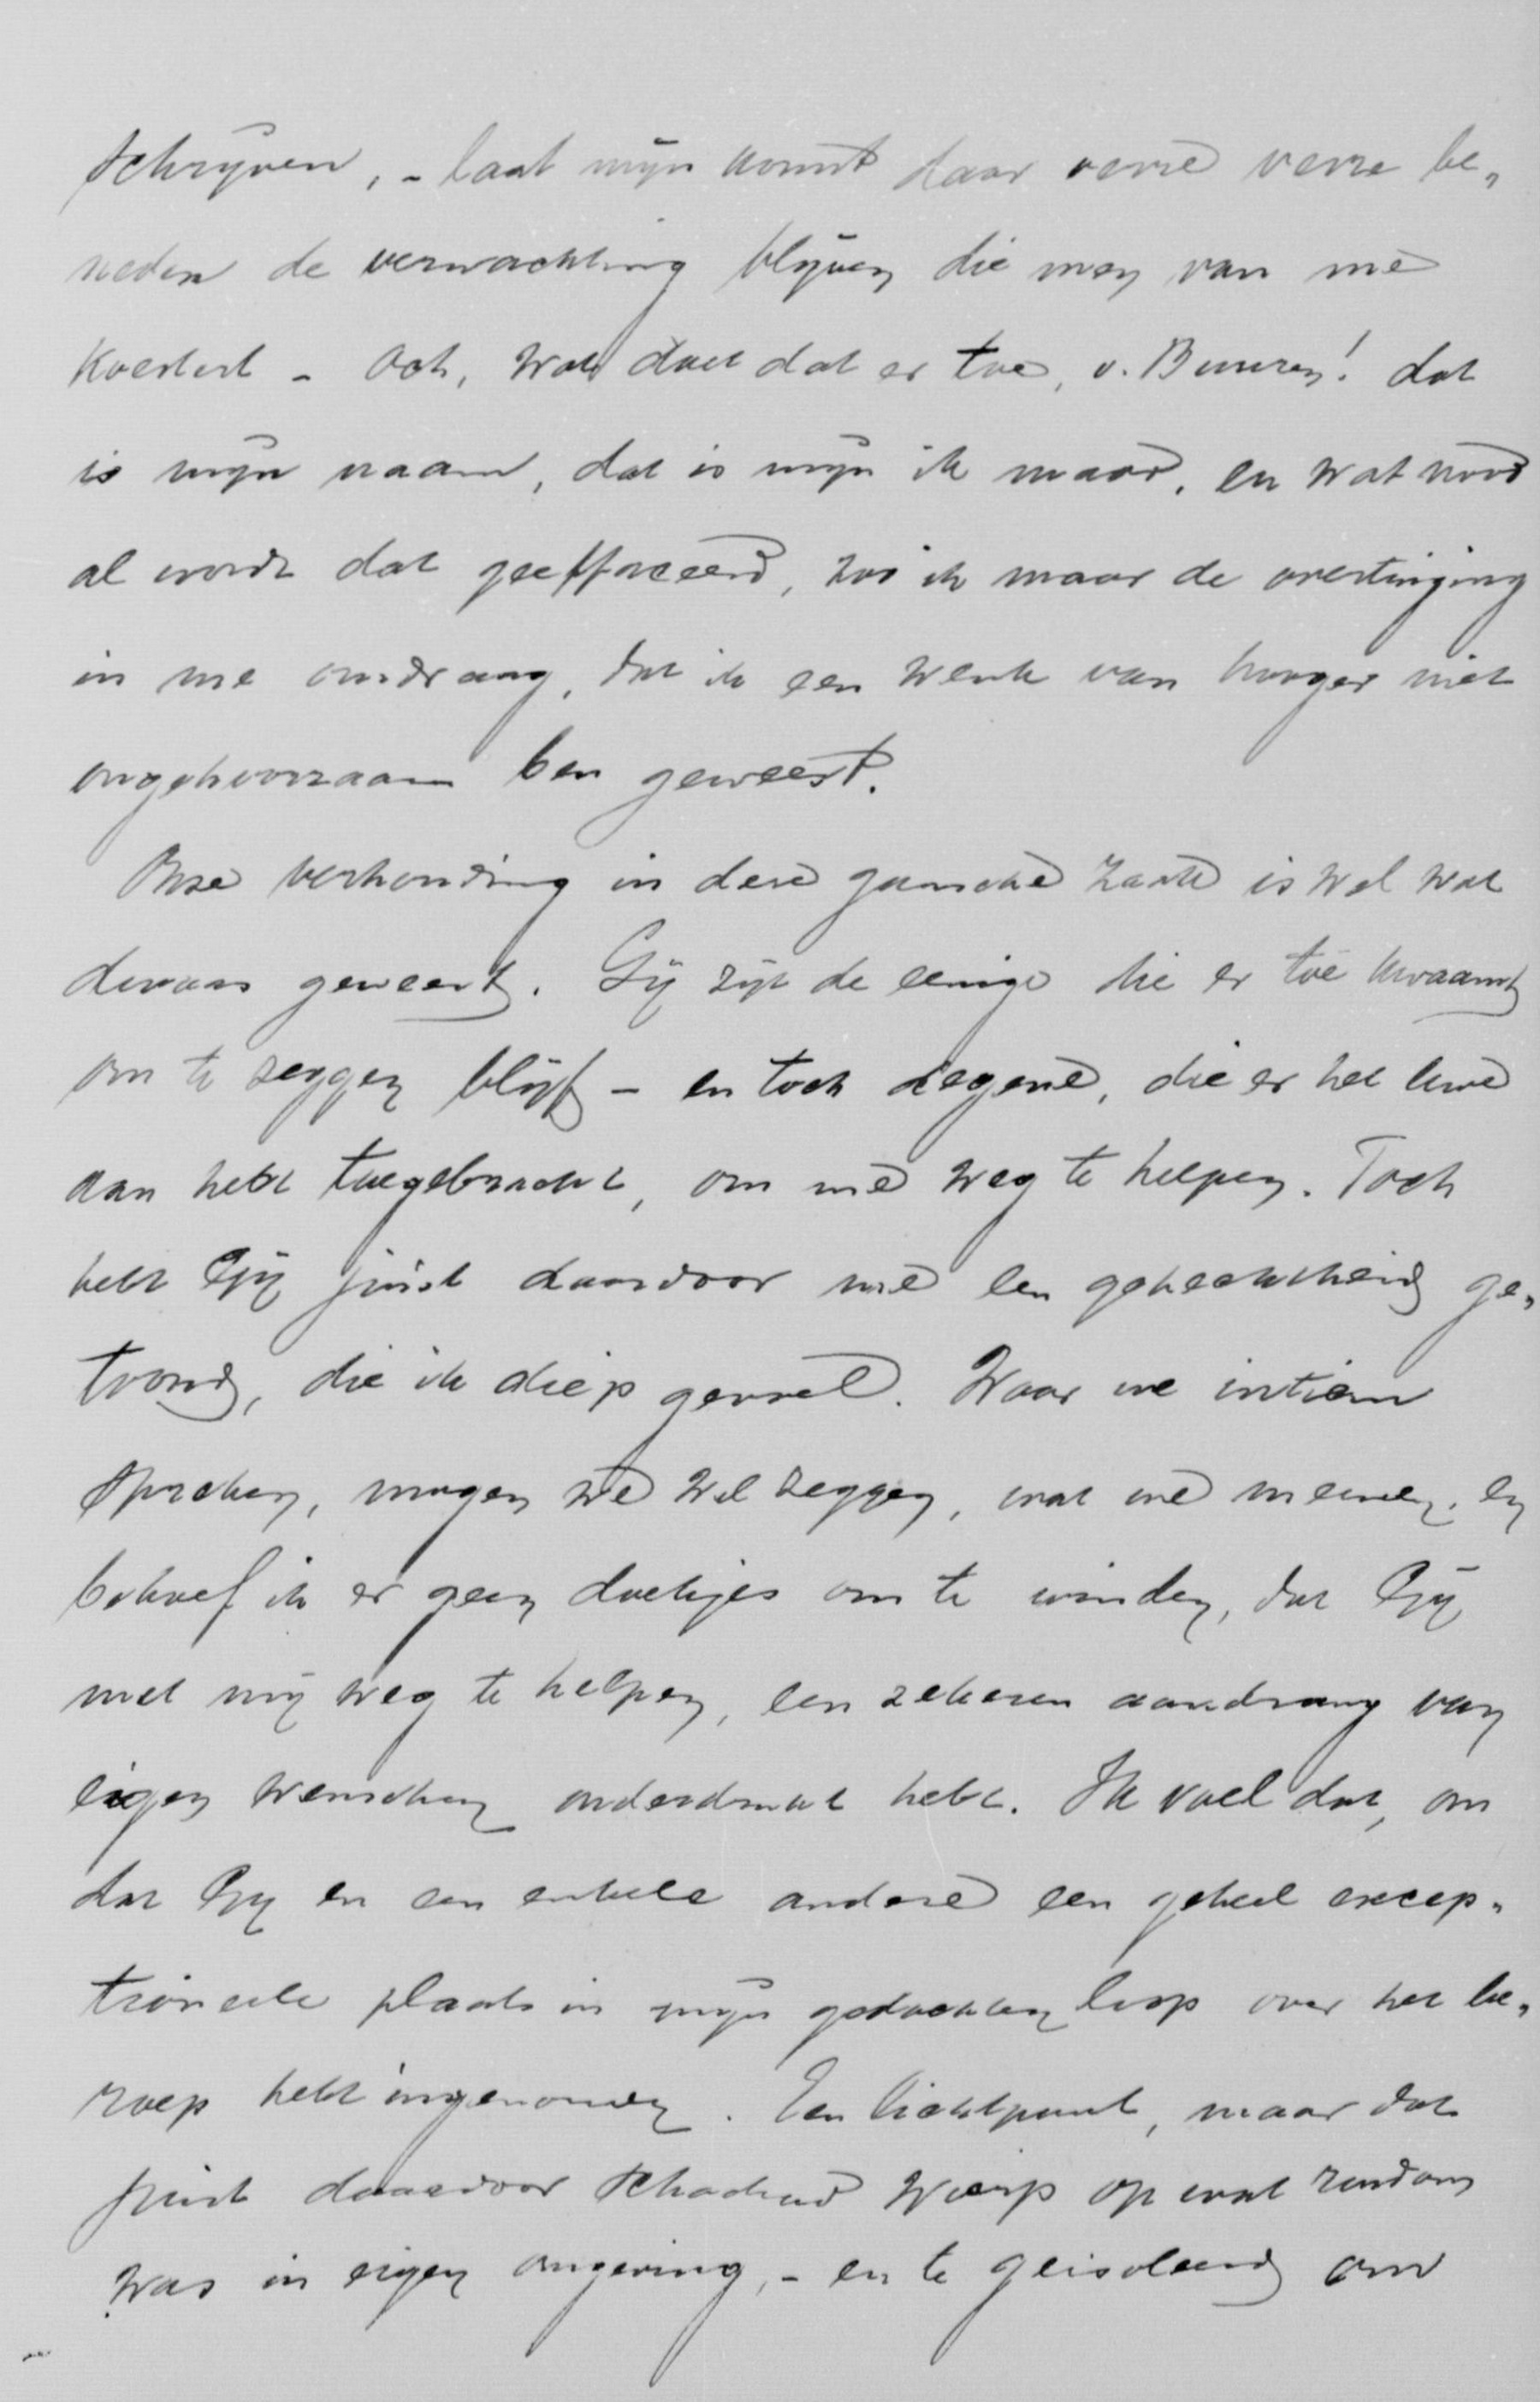 schrijven, - laat mijn komst daar verre verre be„
neden de verwachting blijven die men van me
koestert - Och, wat doet dat er toe, v. Buuren! dat
is mijn naam, dat is mijn ik maar, en wat nood
al wordt dat geeffaceerd, zoo ik maar de overtuiging
in me omdraag, dat ik een wenk van hooger niet
ongehoorzaam ben geweest.
Onze verhouding in deze gansche zaak is wel wat
dwaas geweest. Gij zijt de eenige die er toe kwaamt
om te zeggen blijf - en toch degene, die er het uwe
aan hebt toegebracht, om me weg te helpen. Toch
hebt Gij juist daardoor me een gehechtheid ge„
toond, die ik diep gevoel. Waar we intiem
spreken, mogen we wel zeggen, wat we meenen, en
behoef ik er geen doekjes om te winden, dat Gij
met mij weg te helpen, een zekeren aandrang van
eigen wenschen onderdrukt hebt. Ik voel dat, om
dat Gij en een enkele andere een geheel excep„
tioneele plaats in mijn gedachtenloop over het be„
roep hebt ingenomen. Een lichtpunt, maar dat
juist daardoor schaduw wierp op wat rondom
was in eigen omgeving, - en te geisoleerd om